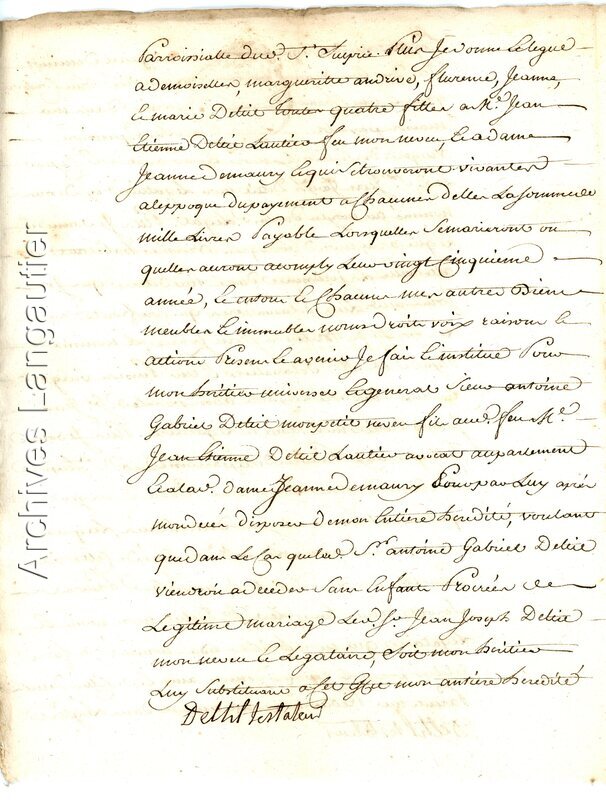 Parroissialle dud. St. Supice. Plus Je donne & legue
a demoiselles margueritte andrivé, florence, Jeanne,
& marie Deltil toutes quatre filles a Mr. Jean
Etienne Deltil Lautier feu mon neveu, & a dame
Jeanne demaury & qui se trouveront vivantes
al'eppoque du payement a Chacune d'elles La somme de
mille Livres Payable Lorsquelles se marieront ou
quelles auront acomply leur vingt Cinquieme
année, & en tous & Chacuns mes autres Biens
meubles & immeubles noms droits voix raisons &
actions Presens & avenir Je fais & institue Pour
mon heritier universel & general Sieur antoine
Gabriel Deltil mon petit neveu fils aud. feu Mr.
Jean Etienne Deltil Lautier avocat au parlement
& a lad. dame Jeanne demaury Pour par Luy après
mon decés disposer de mon Entiere heredité, voulant
que dans Le Cas que led. Sr. antoine Gabriel Deltil
viendroit a deceder Sans Enfants Procréés de
Legitime mariage Led. Sr. Jean Joseph Deltil
mon neveu & Legataire, soit mon heritier
Luy Substituant a Cet Effet mon entiere heredité
Delthil testateur
Archives Langautier